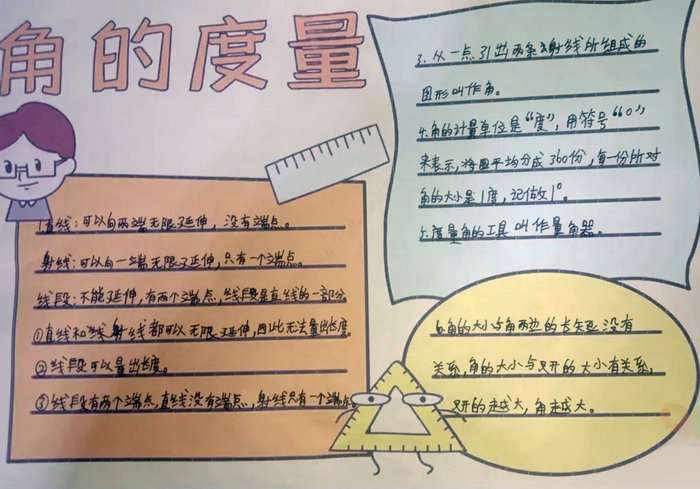 角的度量
1.直线:可以向两端无限延伸,没有端点。
射线:可以向一端无限延伸,只有一个端点。
线段:不能延伸,有两个端点,线段是直线的一部分。
①直线和射线都可以无限延伸,因此无法量出长度。
②线段可以量出长度。
③线段有两个端点,直线没有端点,射线只有一个端点
3.从一点引出两条射线所组成的
图形叫作角。
4.角的计量单位是“度”,用符号“°”
来表示,将圆平均分成360份,每一份所对
角的大小是1度,记做1°。
5.度量角的工具叫作量角器。
6.角的大小与角两边的长短没有
关系,角的大小与叉开的大小有关系,
叉开的越大,角越大。